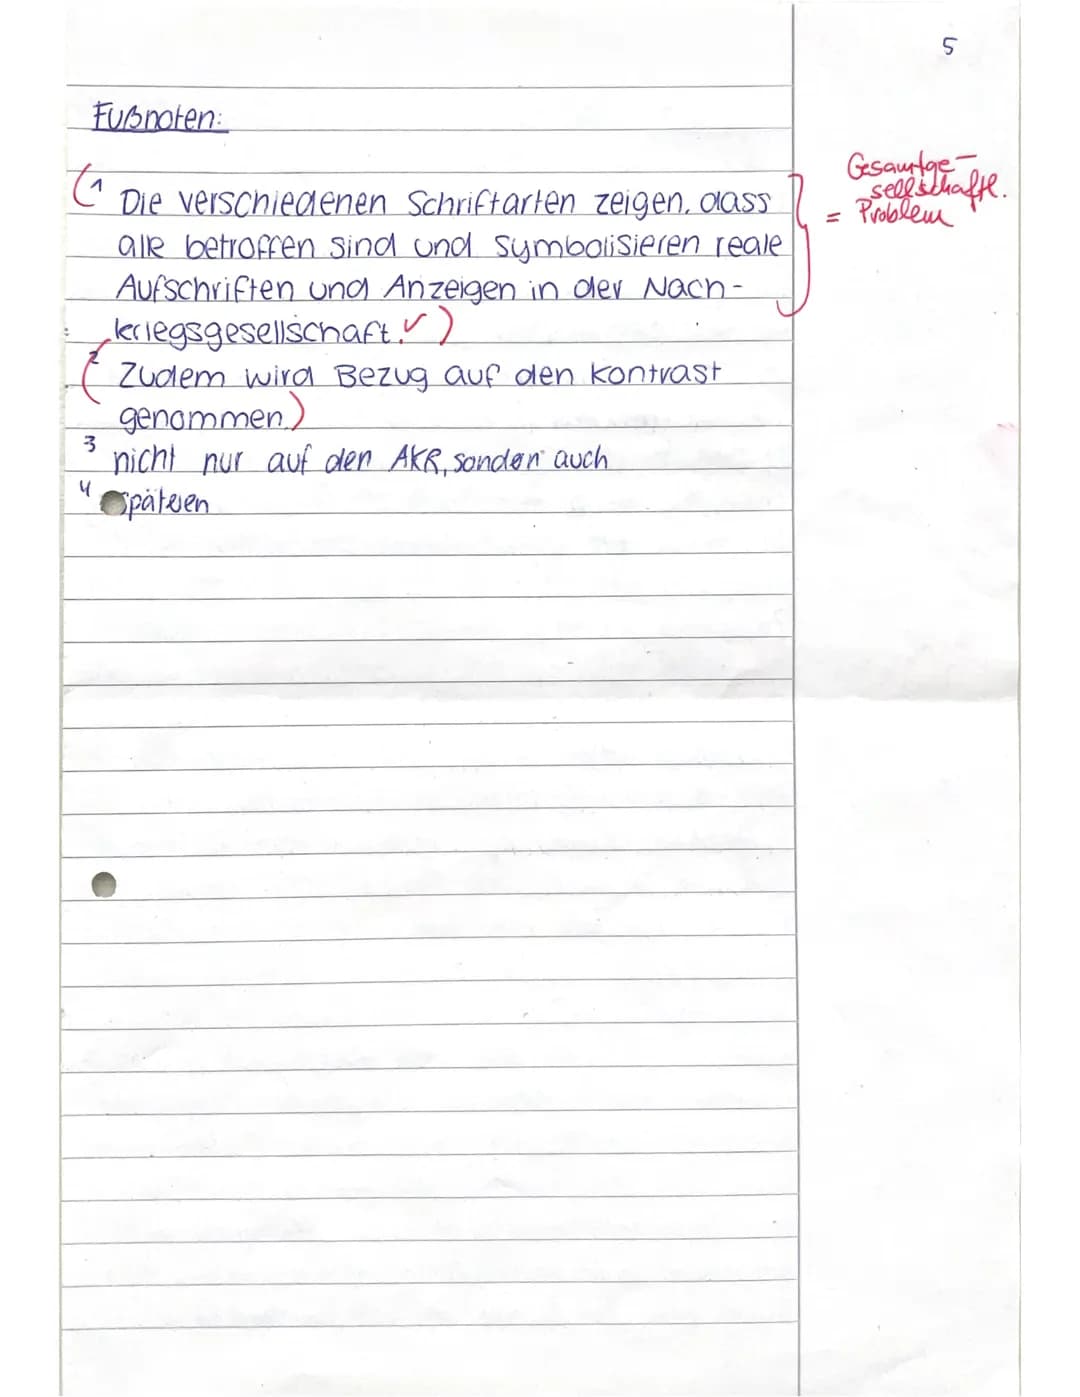 5
Fußnoten:
(1 Die verschiedenen Schriftarten zeigen, dass
alle betroffen sind und symbolisieren reale
Aufschriften und Anzeigen in der Nach-
kriegsgesellschaft. ✓)
Gesamtge-
sellschaftl.
= Problem
(2 Zudem wird Bezug auf den Kontrast
genommen.)
3 nicht nur auf den AKR, sondern auch
4 späteren